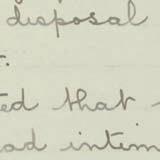 disposal
.
ed that
ad intim